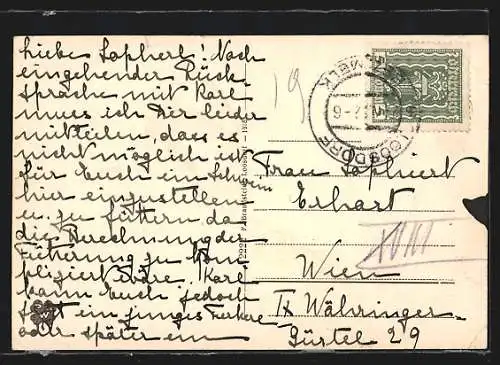 Liebe Sopherl! Nach
eingehender Rück-
sprache mit Karl
muss ich Dir leider
mitteilen, dass es
nicht möglich ist
für Euch ein Schwein
hier einzustellen
u. zu füttern da
die Berechnung der
Fütterung zu kom-
pliziert wäre. Karl
kann Euch jedoch
ein junges Ferkerl
oder später ein
19
LOOSDORF
MELK
Frau
Erhart
Wien
XVIII
IX Währinger-
Gürtel 29